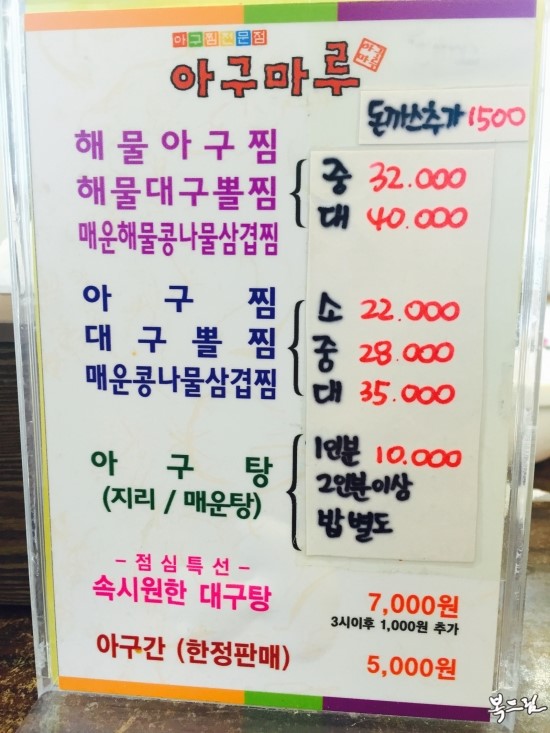 아구찜전문점
아구마루
아구
마루
돈까스추가 1500
해물아구찜
해물대구뽈찜
매운해물콩나물삼겹찜
중 32.000
대 40.000
아구찜
대구뽈찜
매운콩나물삼겹찜
소 22.000
중 28.000
대 35.000
아구탕
(지리 / 매운탕)
1인분 10.000
2인분이상
밥별도
- 점심특선 -
속시원한 대구탕 7,000원
3시이후 1,000원 추가
아구간 (한정판매) 5,000원
복드림